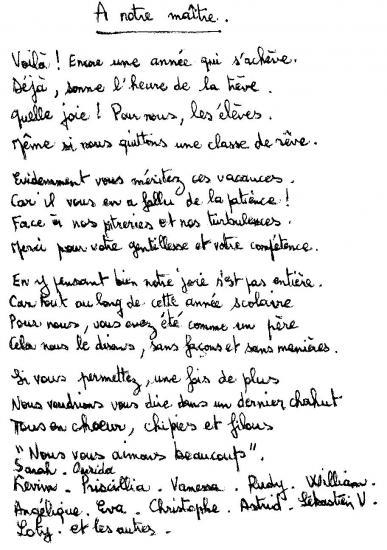 A notre maître.
Voilà ! Encore une année qui s'achève.
Déjà, sonne l'heure de la trêve.
quelle joie ! Pour nous, les élèves.
Même si nous quittons une classe de rêve.
Evidemment vous méritez ces vacances.
Car il vous en a fallu de la patience !
Face à nos pitreries et nos turbulences.
Merci pour votre gentillesse et votre compétence.
En y pensant bien notre joie n'est pas entière.
Car tout au long de cette année scolaire
Pour nous, vous avez été comme un père
Cela nous le disons, sans façons et sans manières.
Si vous permettez, une fois de plus
Nous voudrions vous dire dans un dernier chahut
Tous en choeur, chipies et filous
"Nous vous aimons beaucoup".
Sarah. Ourida
Kevin. Priscillia. Vanessa. Rudy. William.
Angélique. Eva. Christophe. Astrid. Sébastien V.
Loty. et les autres.